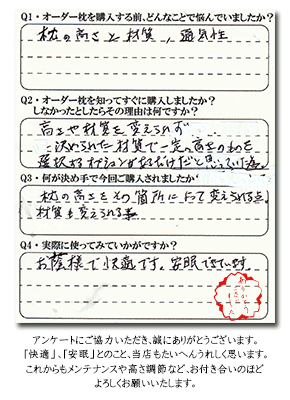 Q1・オーダー枕を購入する前、どんなことで悩んでいましたか?
枕の高さと材質、通気性
Q2・オーダー枕を知ってすぐに購入しましたか?
しなかったとしたらその理由は何ですか?
高さや材質を変えられず
決められた材質で一定の高さのものを
選択する
だけだと思っていた
Q3・何が決め手で今回ご購入されましたか
枕の高さをその箇所にて変えられる点、
材質も変えられる
Q4・実際に使ってみていかがですか?
お蔭様で快適です。安眠できています
アンケートにご協力いただき、誠にありがとうございます。
「快適」、「安眠」とのこと、当店もたいへんうれしく思います。
これからもメンテナンスや高さ調節など、お付き合いのほど
よろしくお願いいたします。